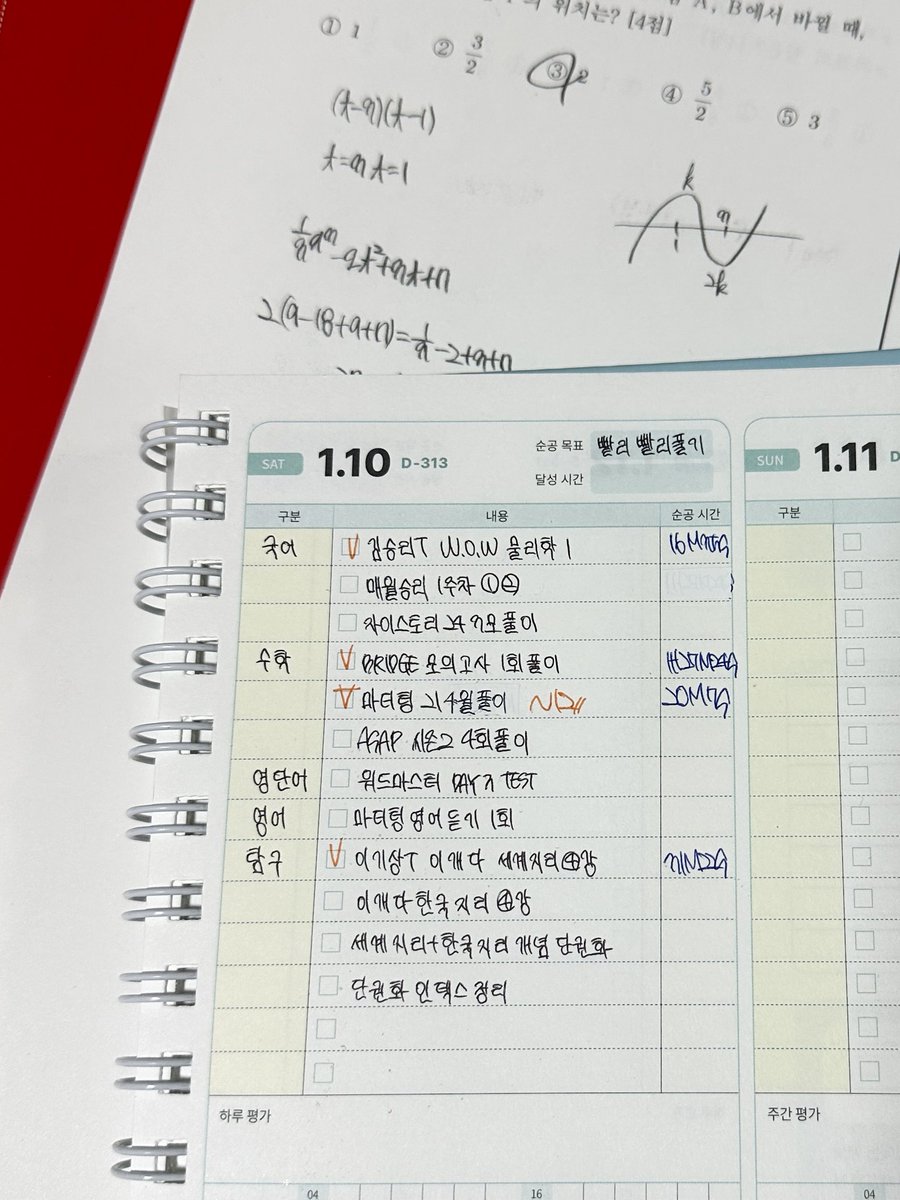 A, B에서 바뀔 때,
위치는? [4점]
① 1 ② 3/2 ③ 2 ④ 5/2 ⑤ 3
(t-9)(t-1)
t=9 t=1
k
9
2k
SAT 1.10 D-313
순공 목표 빨리 빨리풀기
달성 시간
구분 내용 순공 시간
국어 김승리T W.O.W 물리학 1
매월승리 1주차 ①②
자이스토리 24 9모풀이
수학 BRIDGE 모의고사 1회풀이
마더텅 21 4월풀이
ASAP 시즌2 4회풀이
영단어 워드마스터 DAY 7 TEST
영어 마더텅 영어듣기 1회
탐구 이기상T 이개다 세계지리 ④강
이개다 한국지리 ④강
세계지리+한국지리 개념 단권화
단권화 인덱스 정리
하루 평가
04 16
SUN 1.11 D
구분
주간 평가
04